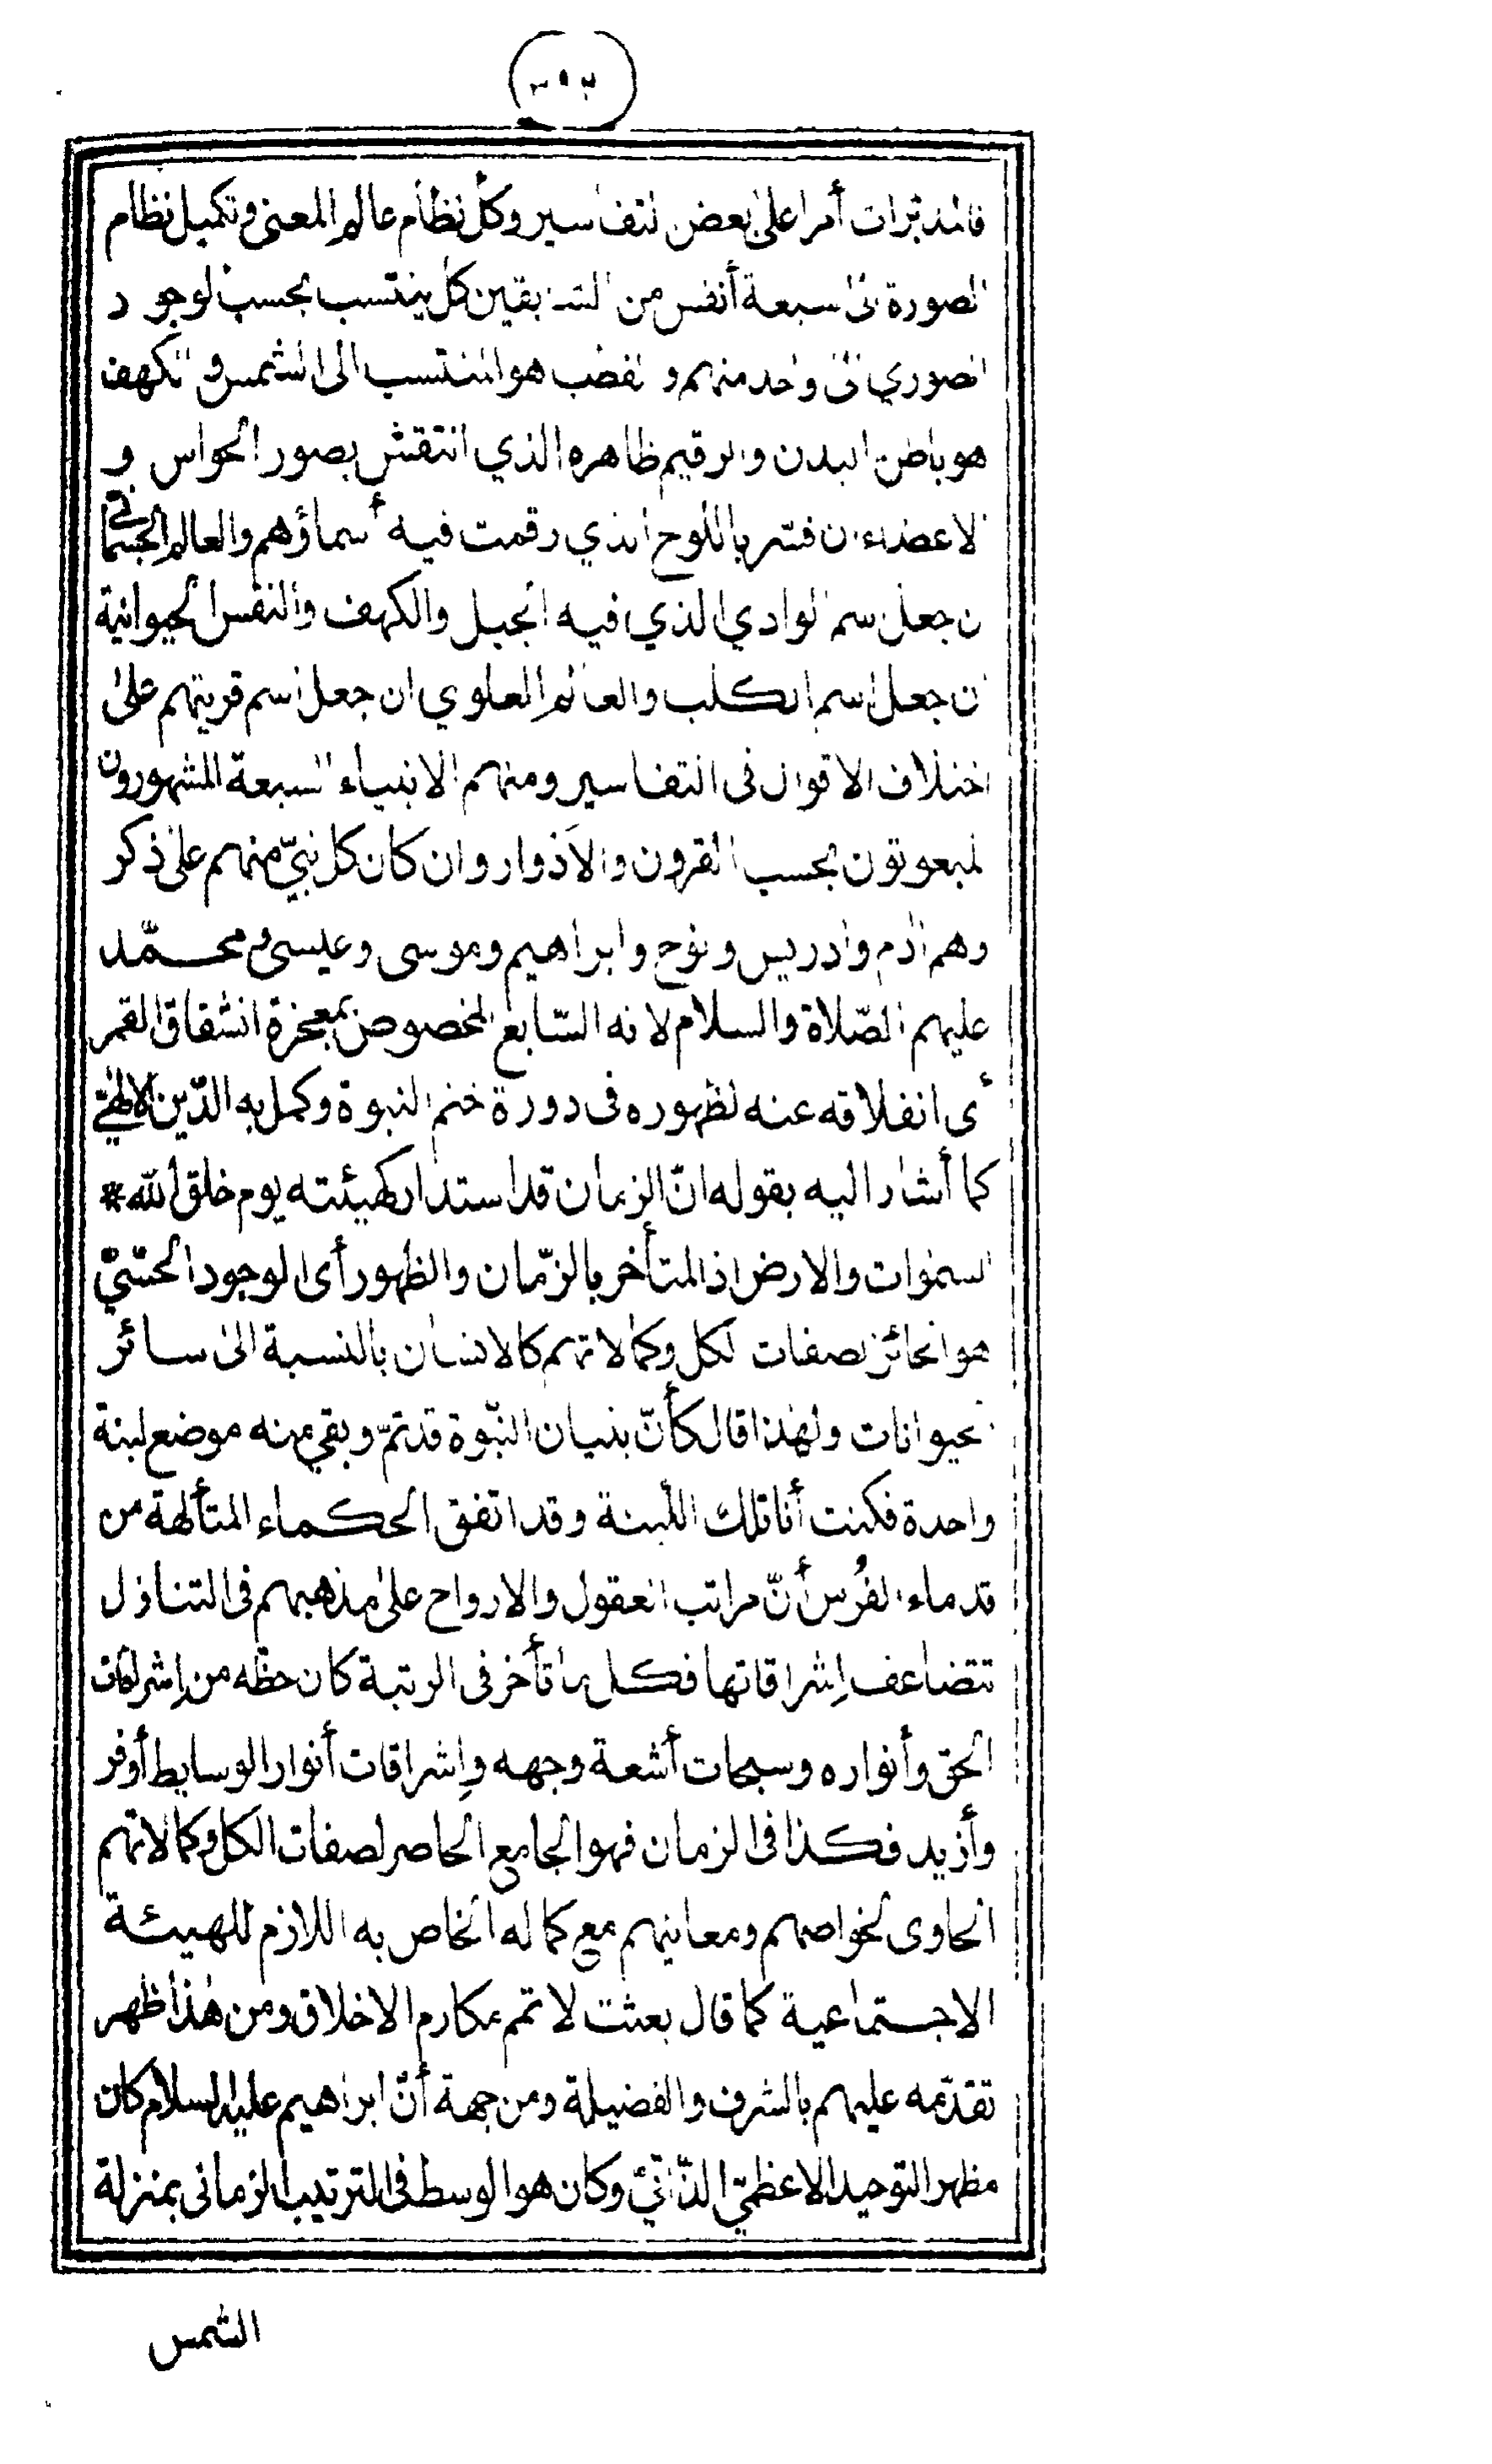 فالمدبرات أمرا على بعض التفاسير وكل نظام عالم المعنى وتكميل نظام
الصورة الى سبعة أنفس من السابقين كل ينتسب بحسب الوجود
الصوري الى واحد منهم والقطب هو المنتسب الى الشمس والكهف
هو باطن البدن والرقيم ظاهره الذي انتقش بصور الحواس و
الاعضاء ان فسّر باللوح الذي رقمت فيه أسماؤهم والعالم الجسماني
ن جعل اسم الوادي الذي فيه الجبل والكهف والنفس الحيوانية
ان جعل اسم الكلب والعالم العلوي ان جعل اسم قريتهم على
اختلاف الاقوال فى التفاسير ومنهم الانبياء السبعة المشهورون
لمبعوثون بحسب القرون والادوار وان كان كل نبيّ منهم على ذكر
وهم آدم وادريس ونوح وابراهيم وموسى وعيسى ومحمّد
عليهم الصّلاة والسلام لانه السّابع المخصوص بمعجزة انشقاق القمر
أى انفلاقه عنه لظهوره فى دورة ختم النبوة وكمل به الدّين الالهيّ
كما أشار اليه بقوله انّ الزمان قد استدار كهيئته يوم خلق الله *
السموات والارض اذ المتأخر بالزّمان والظهور أى الوجود الحسّيّ
هو الحائز لصفات الكل وكمالاتهم كالانسان بالنسبة الى سائر
الحيوانات ولهذا قال كأنّ بنيان النبّوة قد تمّ وبقي منه موضع لبنة
واحدة فكنت أنا تلك اللبنة وقد اتفق الحكماء المتألهة من
قدماء الفُرس أنّ مراتب العقول والارواح على مذهبهم فى التنازل
تتضاعف إشراقاتها فكل ما تأخر فى الرتبة كان حظّه من إشراقات
الحق وأنواره وسبحات أشعة وجهه وإشراقات أنوار الوسايط أوفر
وأزيد فكذا فى الزمان فهو الجامع الحاصر لصفات الكل وكمالاتهم
الحاوى لخواصهم ومعانيهم مع كماله الخاص به اللازم للهيئة
الاجتماعية كما قال بعثت لاتمم مكارم الاخلاق ومن هذا ظهر
تقدّمه عليهم بالشرف والفضيلة ومن جهة أنّ ابراهيم عليه السلام كان
مظهر التوحيد الاعظميّ الذّاتيّ وكان هو الوسط فى الترتيب الزمانى بمنزلة
الشمس